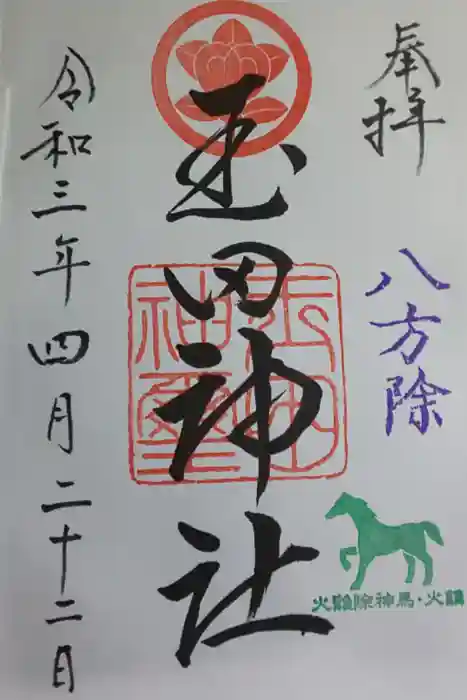 奉拝
八方除
玉田神社
令和三年四月二十二日
火難除神馬・火